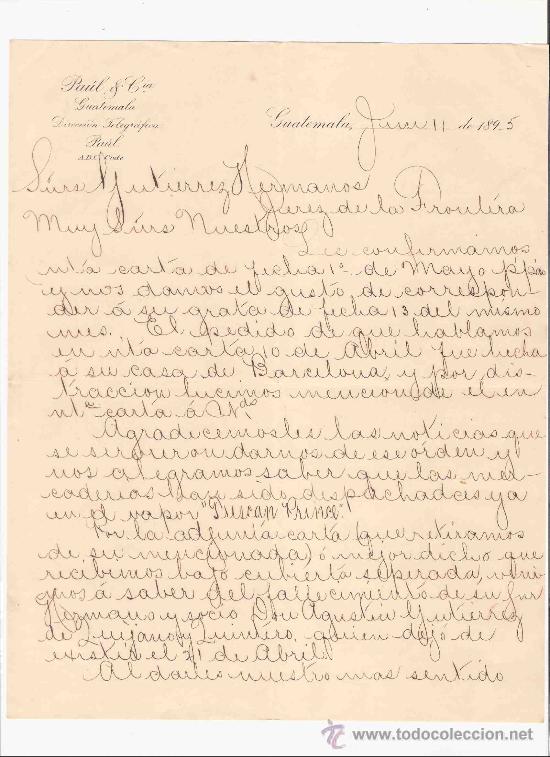 Paúl & Cía
Guatemala
Dirección Telegráfica
Paúl
A.B.C. Code
Guatemala, Junio 11 de 1895
Sñrs Gutierrez Hermanos
Jerez de la Frontéra
Muy Sñrs Nuestros
Les confirmamos
nta carta de fecha 1º de Mayo ppdo
y nos damos el gusto de correspon-
der á su grata de fecha 13 del mismo
mes. El pedido de que hablamos
en nta carta 10 de Abril fue hecha
a su casa de Barcelona, y por dis-
traccion hicimos mencion de el en
nta carta á Uds
Agradecemosles las noticias que
se sirvieron darnos de ese orden y
nos alegramos saber que las mer-
caderias han sido despachadas ya
en el vapor "Tuscan Prince".
Por la adjunta carta (que retiramos
de su mencionada) ó mejor dicho que
recibimos bajo cubierta separada, veni-
mos á saber del fallecimiento de su Sñr
Hermano y socio Don Agustin Gutierrez
de Quijano y Quintero, quien dejó de
existir el 21 de Abril.
Al darles nuestro mas sentido
www.todocoleccion.net